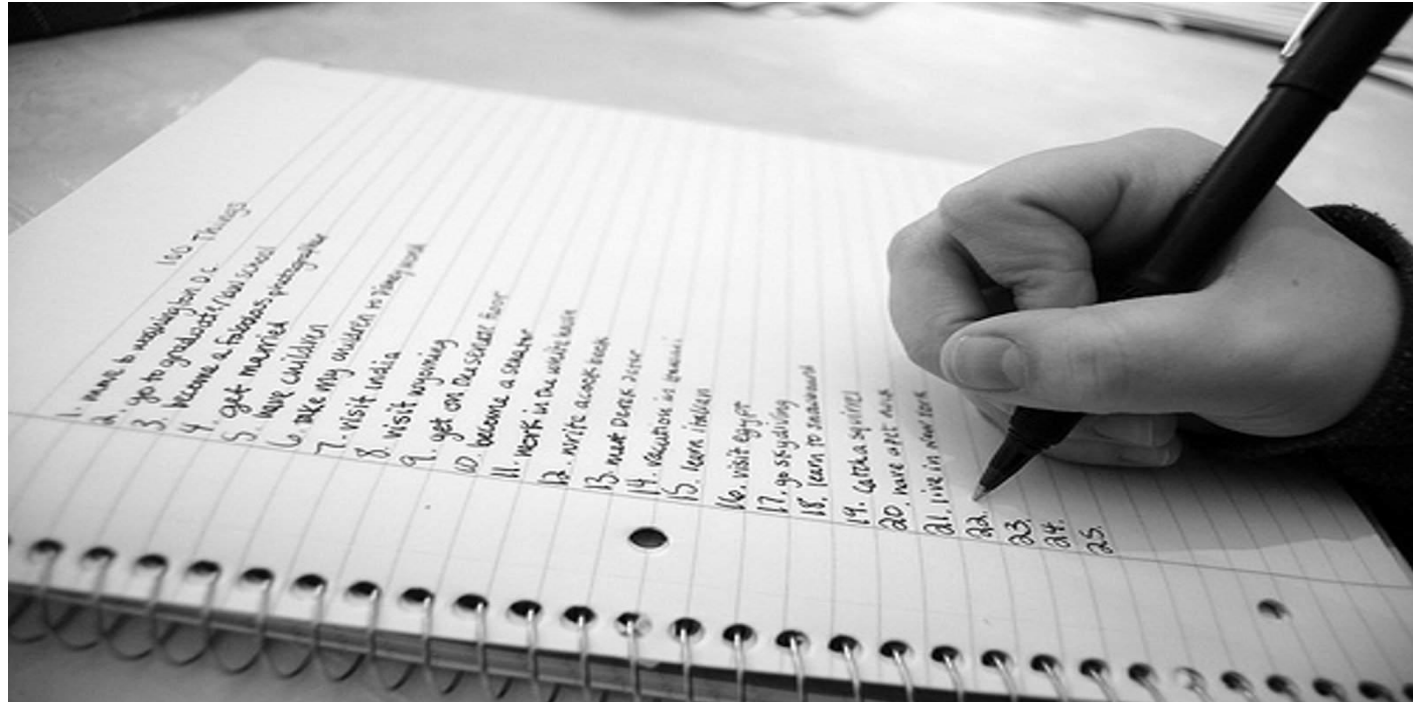 100 Things
1. move to washington D.C.
2. go to graduate/law school
3. become a fabulous photographer
4. get married
5. have children
6. take my children to disney world
7. visit india
8. visit wyoming
9. get on the senate floor
10. become a senator
11. work in the white house
12. write a cook book
13. meet Derek Jeter
14. vacation in hawaii
15. learn italian
16. visit egypt
17. go skydiving
18. learn to snowboard
19. catch a squirrel
20. have a pet duck
21. live in new york
22.
23.
24.
25.